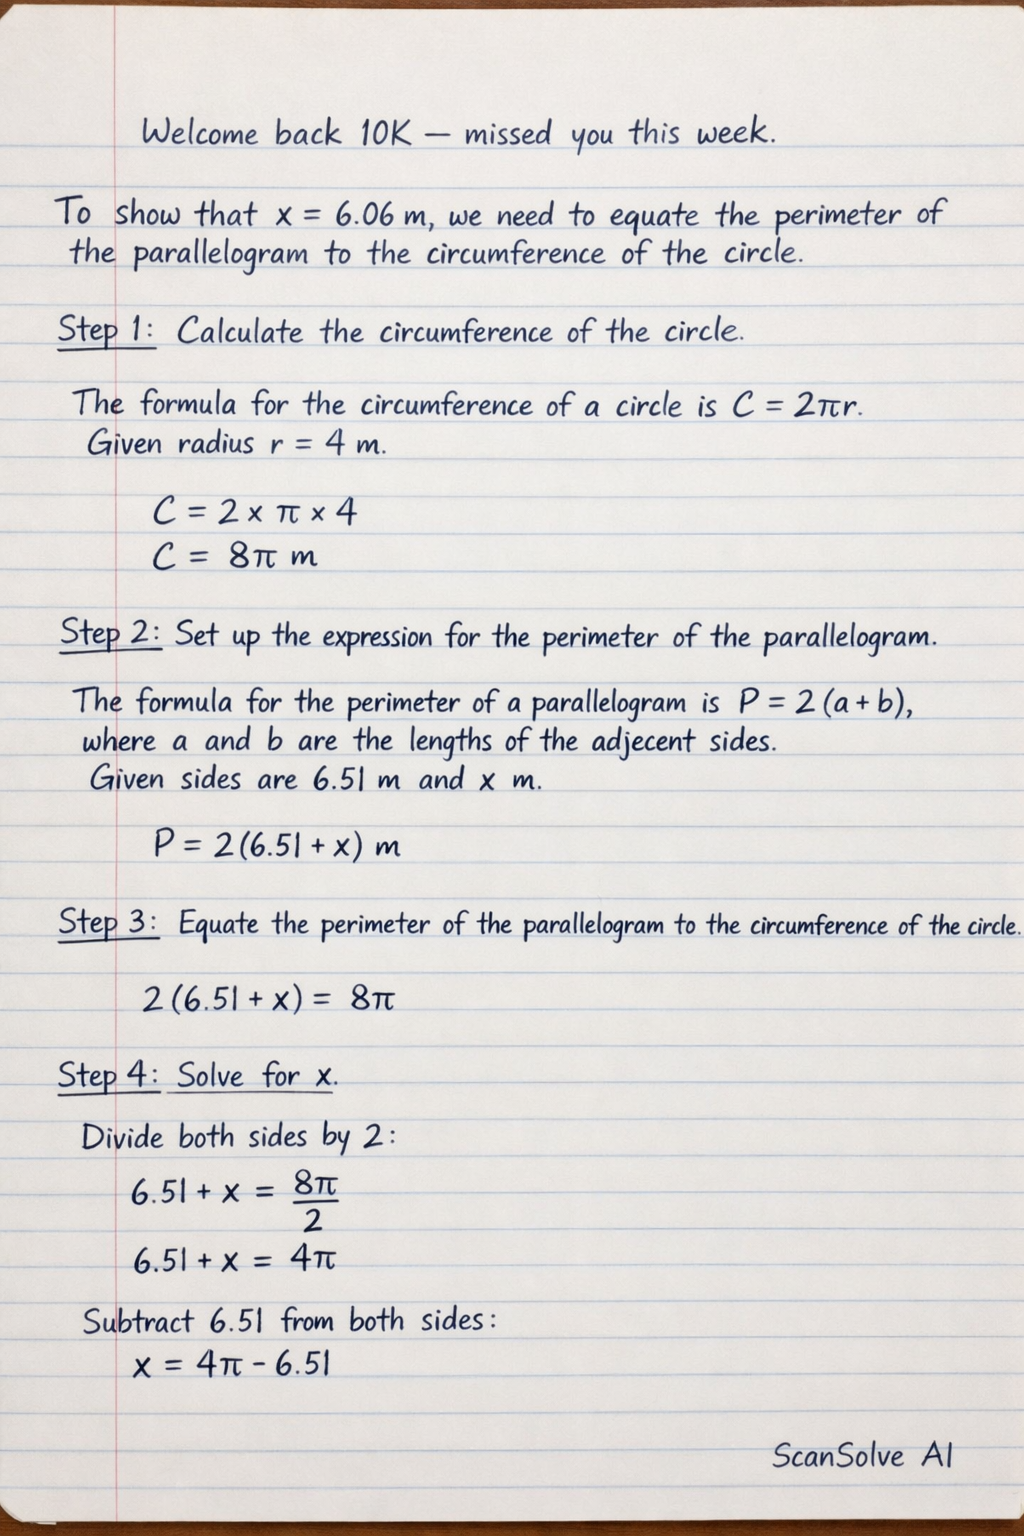 Welcome back 10K — missed you this week.
To show that x = 6.06 m, we need to equate the perimeter of
the parallelogram to the circumference of the circle.
Step 1: Calculate the circumference of the circle.
The formula for the circumference of a circle is C = 2πr.
Given radius r = 4 m.
C = 2 × π × 4
C = 8π m
Step 2: Set up the expression for the perimeter of the parallelogram.
The formula for the perimeter of a parallelogram is P = 2 (a + b),
where a and b are the lengths of the adjecent sides.
Given sides are 6.51 m and x m.
P = 2(6.51 + x) m
Step 3: Equate the perimeter of the parallelogram to the circumference of the circle.
2 (6.51 + x) = 8π
Step 4: Solve for x.
Divide both sides by 2:
6.51 + x = 8π
2
6.51 + x = 4π
Subtract 6.51 from both sides:
x = 4π - 6.51
ScanSolve AI